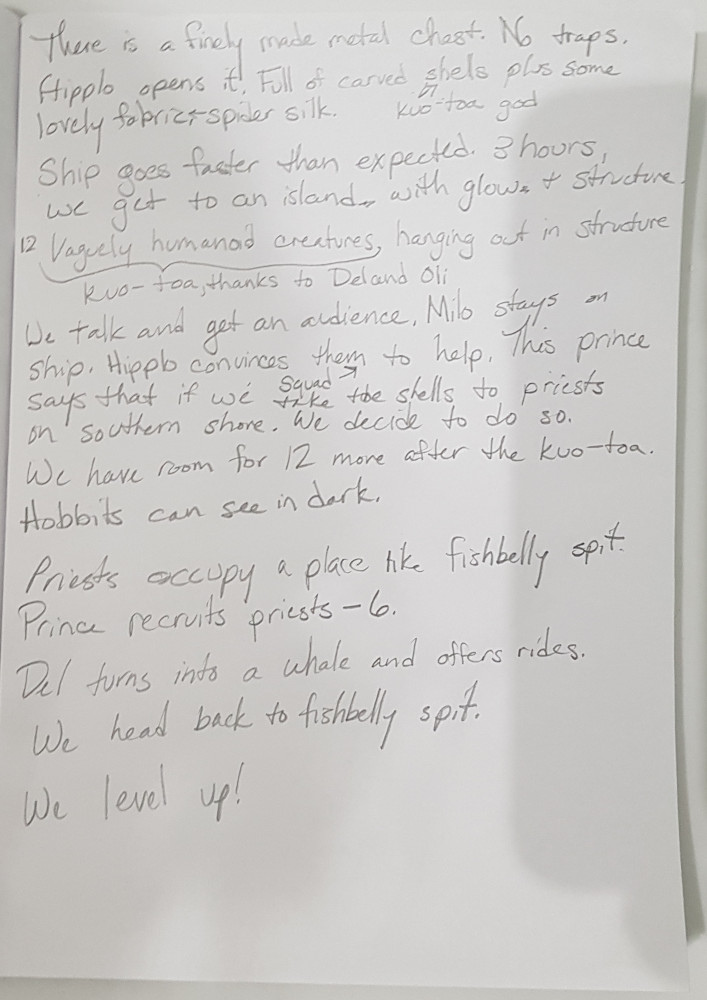 There is a finely made metal chest. No traps.
Hipplo opens it. Full of carved shels plus some
lovely fabric + spider silk. kuo-toa god
Ship goes faster than expected. 3 hours,
we get to an island, with glow + structure.
12 Vaguely humanoid creatures, hanging out in structure
kuo-toa, thanks to Del and Oli
We talk and get an audience. Milo stays on
ship. Hipplo convinces them to help. This prince
squad
says that if we take the shells to priests
on southern shore. We decide to do so.
We have room for 12 more after the kuo-toa.
Hobbits can see in dark.
Priests occupy a place like fishbelly spit.
Prince recruits priests - 6.
Del turns into a whale and offers rides.
We head back to fishbelly spit.
We level up!